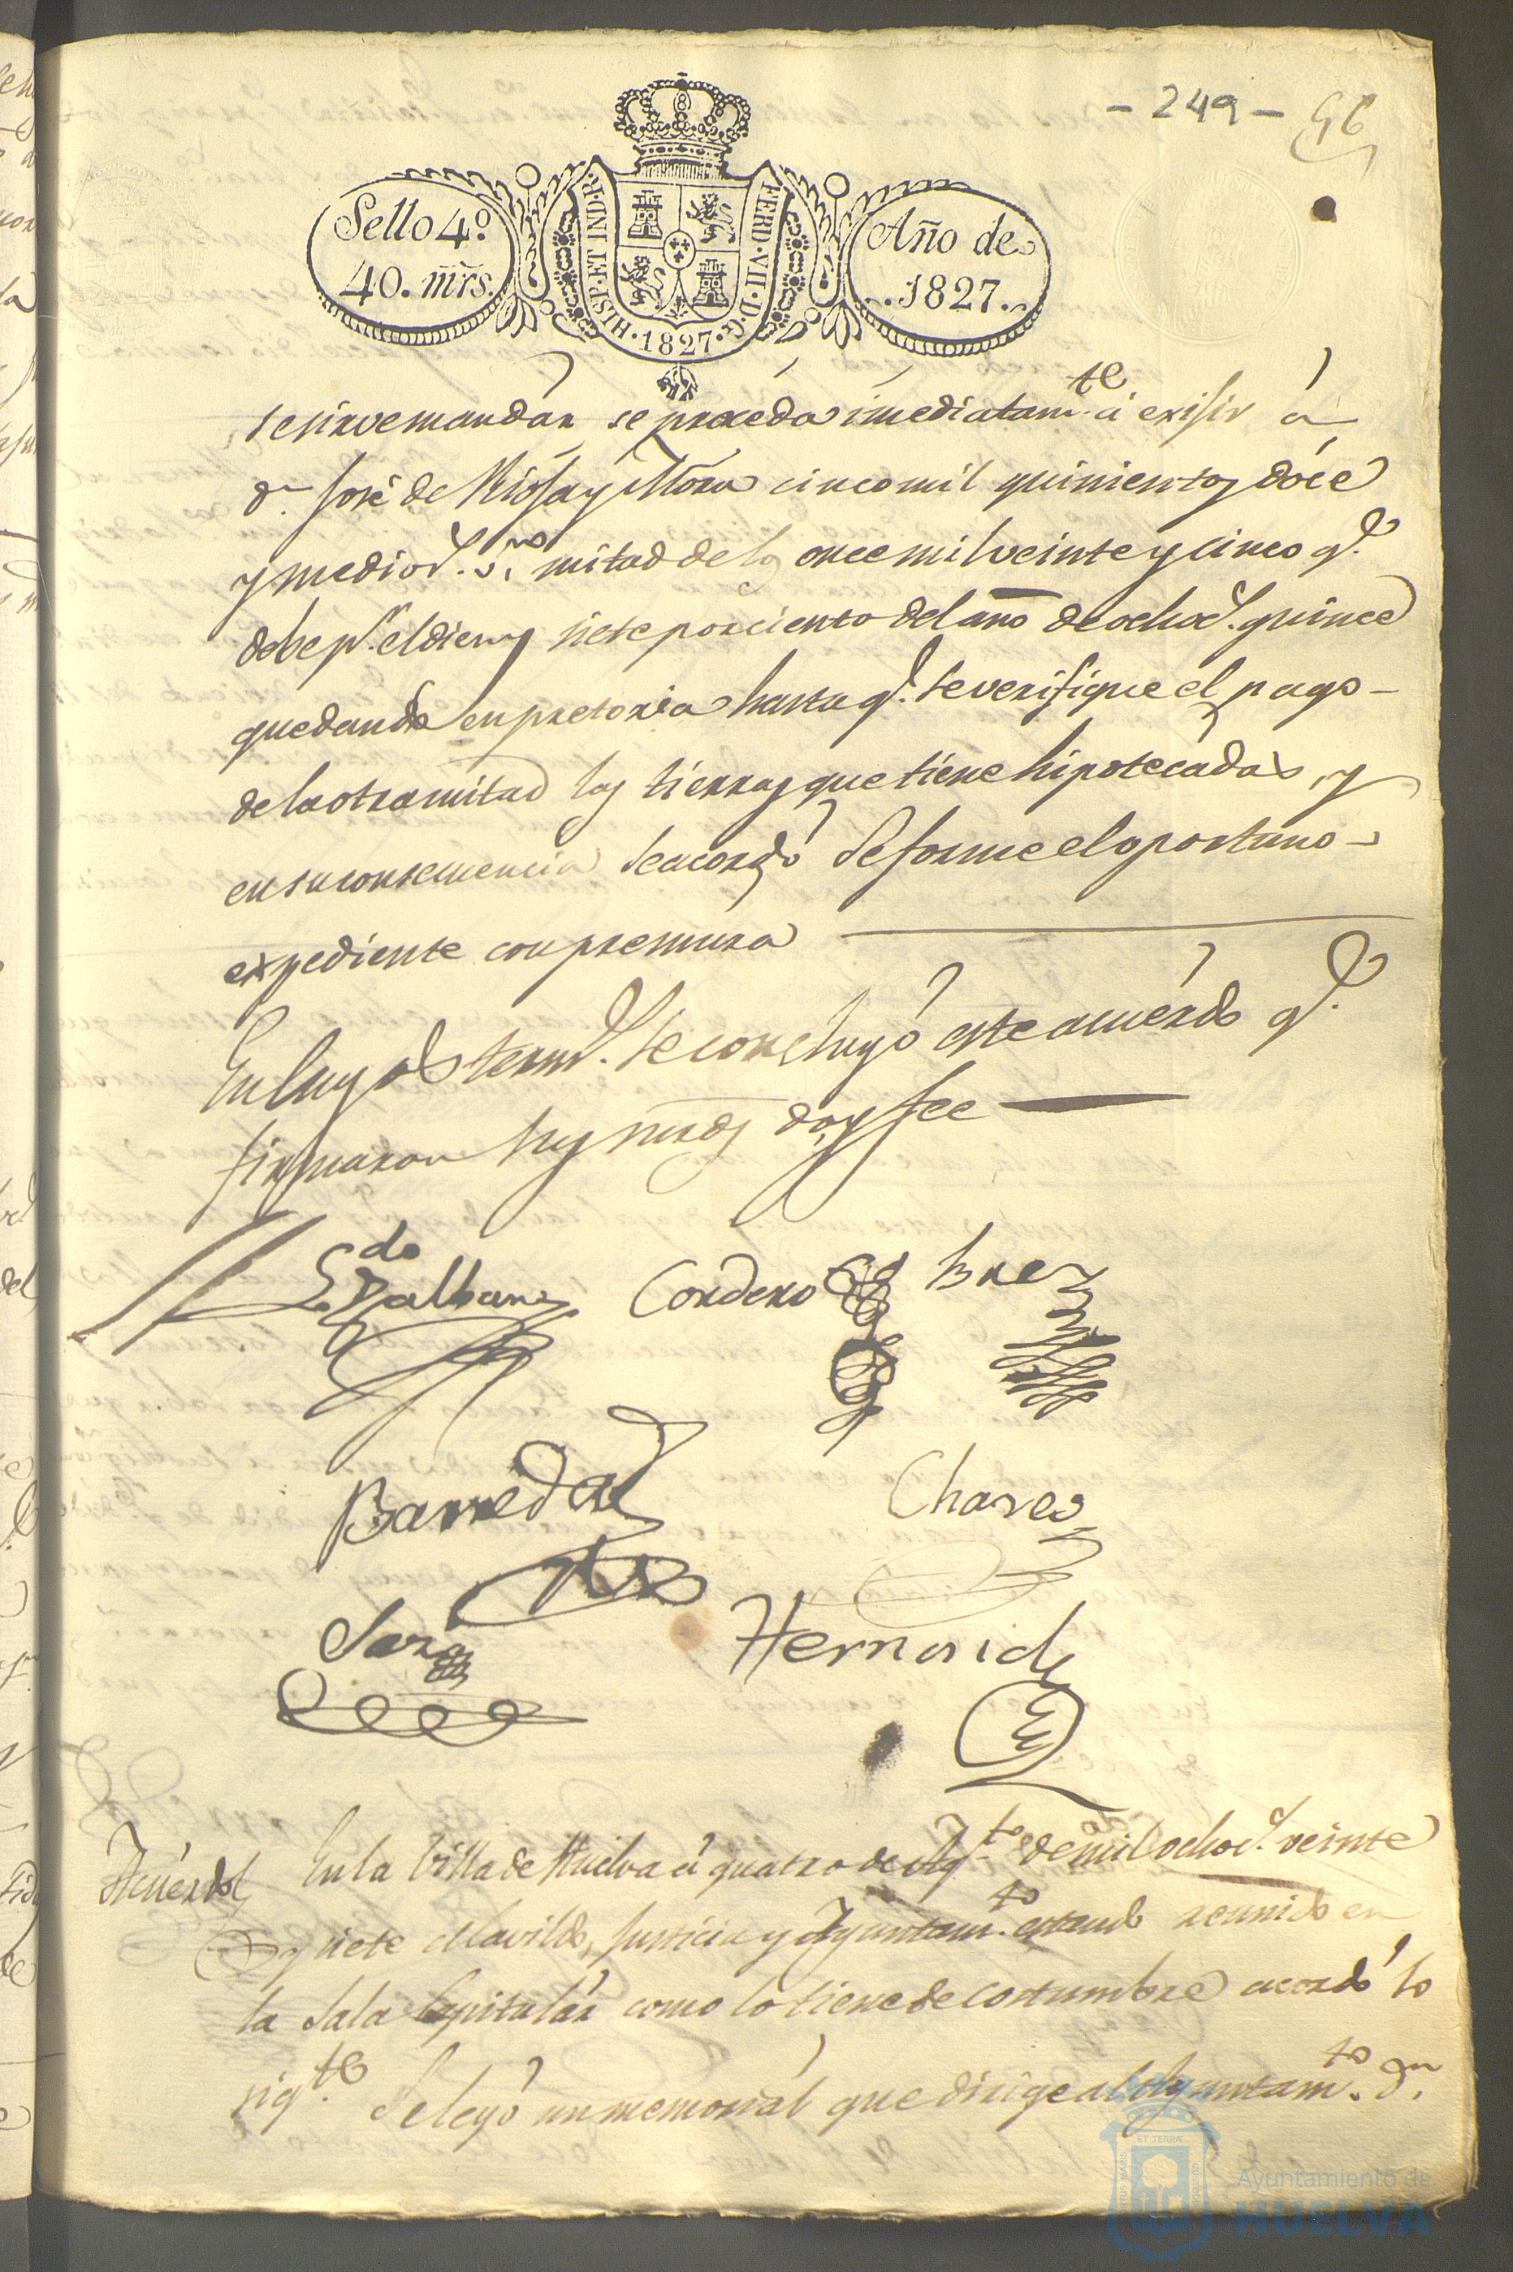 - 249 - 56
Sello 4º
40. mrs.
HISP. ET IND. R.
FERD. VII. D. G.
· 1827 ·
Año de
1827.
se sirve mandar se proceda imediatamte. á exijir á
Dn. José de y Mora cinco mil quinientos doce
y medio rs. vno mitad de los once mil veinte y cinco q.e
debe pr. el diez y siete por ciento del año de ochocs. quince
quedando en pretoria hasta q.e se verifique el pago -
de la otra mitad las tierras que tiene hipotecadas, y
en su consecuencia se acordó se forme el oportuno -
expediente con premura
En cuyos termos. se concluyó este acuerdo q.e
firmaron sus mrds doy fee
Ldo Dalbane Cordero Brez
Barreda Chaves
Sara Hernand
Acuerdo En la Villa de Huelva á quatro de Agto. de mil ochocs. veinte
y siete el Cavildo, Justicia y Ayuntamto. estando reunido en
la Sala Capitular como lo tiene de costumbre acordó lo
sigte. Se leyó un memorial que dirige al Ayuntamto. Dn.
Ayuntamiento de
HUELVA